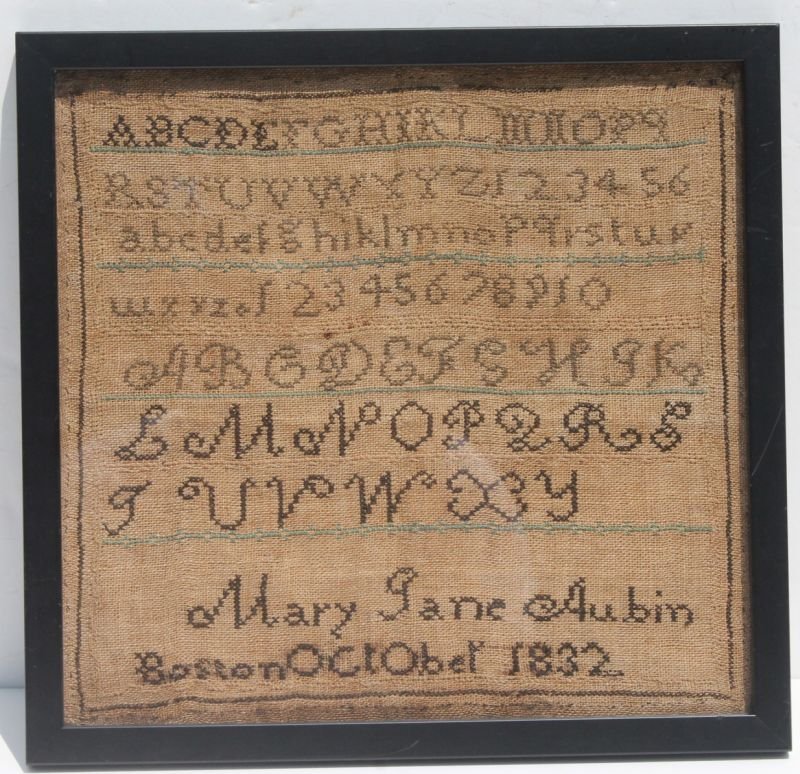 ABCDEFGHIKLMNOPq
RSTUVWXYZ123456
abcdefghiklmnopqrstuv
wxyz&12345678910
ABCDEFGHIK
LMNOPQRS
TUVWXY
Mary Jane Aubin
Boston OCtOber 1832